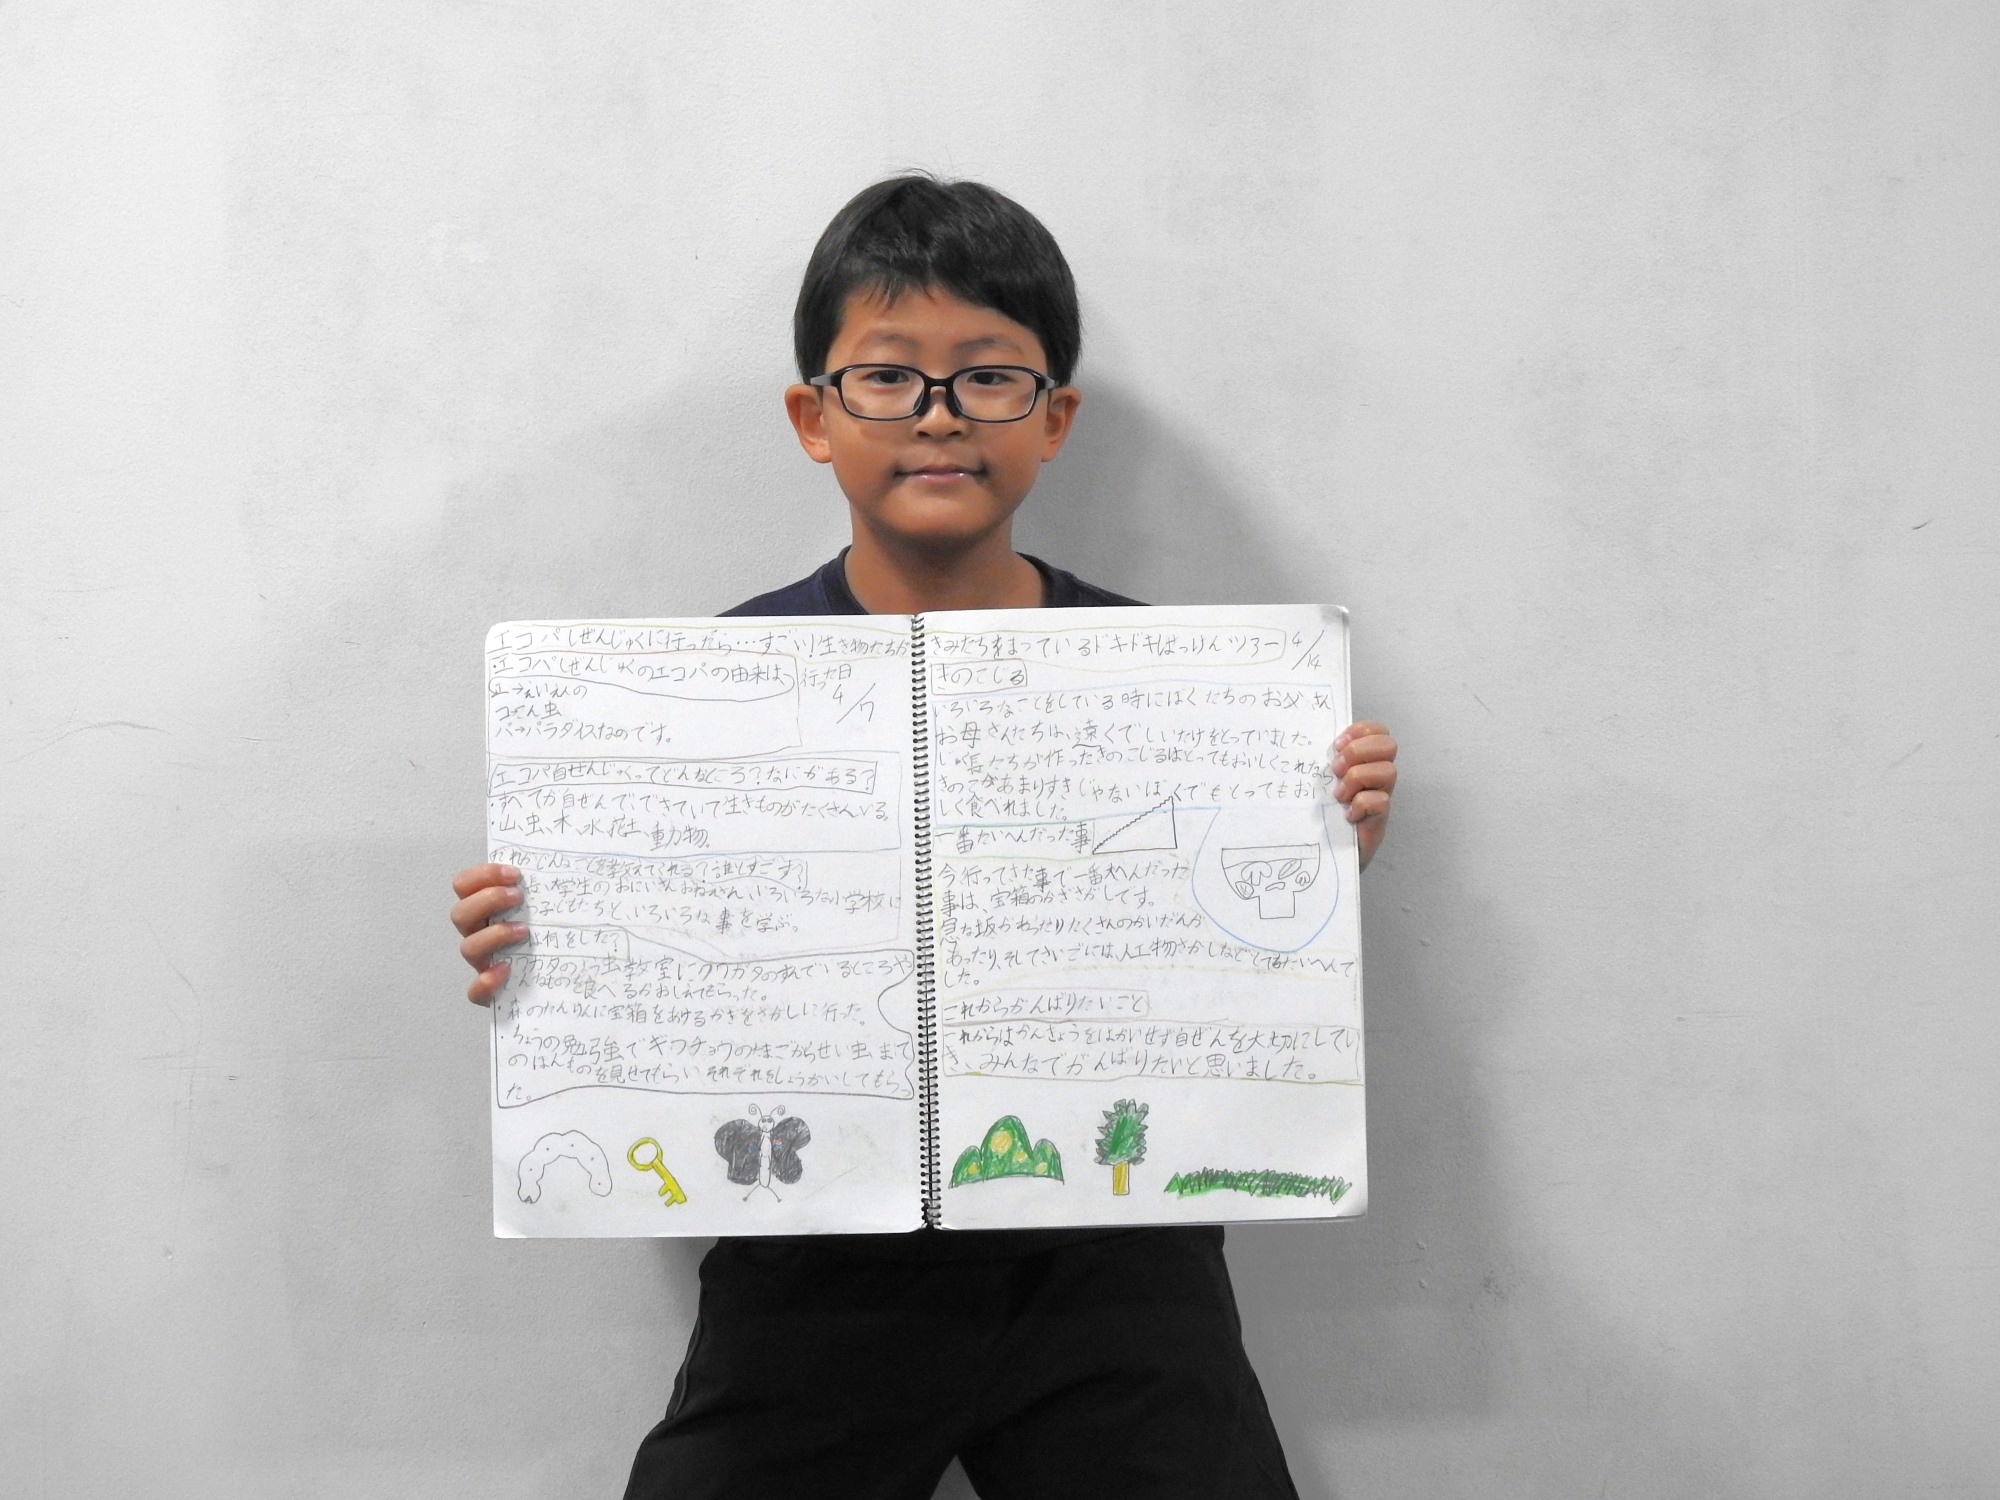 エコパしぜんじゅくに行ったら…すごい!生き物たちが
・エコパしぜんじゅくのエコパの由来は、
行った日
4/7
エ→えいえんの
コ→こん虫
パ→パラダイスなのです。
エコパ自ぜんじゅくってどんなところ?なにがある?
・すべてが自ぜんで、できていて生きものがたくさんいる。
・山、虫、木、水、花、土、動物。
だれがどんなことを教えてくれる?誰とすごす?
長、大学生のおにいさんおねえさん、いろいろな小学校に
う子どもたちと、いろいろな事を学ぶ。
は何をした?
クワガタのよう虫教室にクワガタのすんでいるところや
どんなものを食べるかおしえてもらった。
・森のたんけんに宝箱をあけるかぎをさがしに行った。
・ちょうの勉強でギフチョウのたまごからせい虫まで
のほんものを見せてもらい、それぞれをしょうかいしてもらっ
た。
きみたちをまっているドキドキはっけんツアー 4/14
きのこじる
いろいろなことをしている時にぼくたちのお父さん
お母さんたちは、遠くでしいたけをとっていました。
じゅく長たちが作ったきのこじるはとってもおいしくこれなら
きのこがあまりすきじゃないぼくでもとってもおい
しく食べれました。
一番たいへんだった事
今行ってきた事で一番大へんだった
事は、宝箱のかぎさがしです。
急な坂がわったりたくさんのかいだんが
あったり、そしてさいごには、人工物さがしなどとてもたいへんで
した。
これからがんばりたいこと
これからはかんきょうをはかいせず自ぜんを大切にしてい
き、みんなでがんばりたいと思いました。